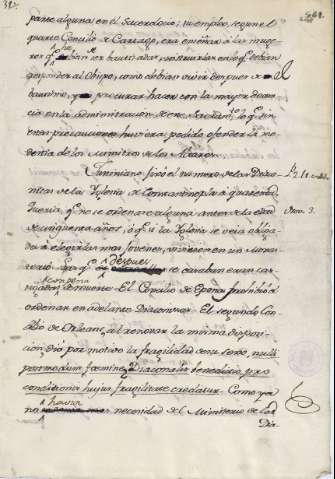 parte alguna en el Sacerdocio; su empleo, segun el
quarto Concilio de Cartago, era enseñar á las muge-
res q.e havian de ser bautizadas, instruirlas en lo q.e debian
responder al Obispo, como debian vivir despues del
bautismo, y procurar hacer con la mayor decen-
cia en la administracion de este Sacram.to lo q.e sin
estas precauciones huviera podido ofender la mo-
destia de los Ministros de los Altares.
Justiniano fixó el numero de las Diaco-
nisas de la Iglesia de Constantinopla á quarenta.
Queria, q.e no se ordenase alguna antes de la edad
de cinquenta años, ó q.e si la Iglesia se veia obliga-
da á elegirlas mas jovenes, viviesen en un Monas-
terio. Las q.e despues se casaban eran cas-
tigadas de muerte. El Concilio de Epona prohibió el
ordenar en adelante Diaconisas. El segundo Con-
cilio de Orleans, al renovar la misma disposi-
cion, dió por motivo la fragilidad de su sexo, nulli
postmodum faeminae Diaconalis benedictio pro
conditionis hujus fragilitate credatur. Como ya
no havia necesidad del Ministerio de las
Dia
Nov. 3.